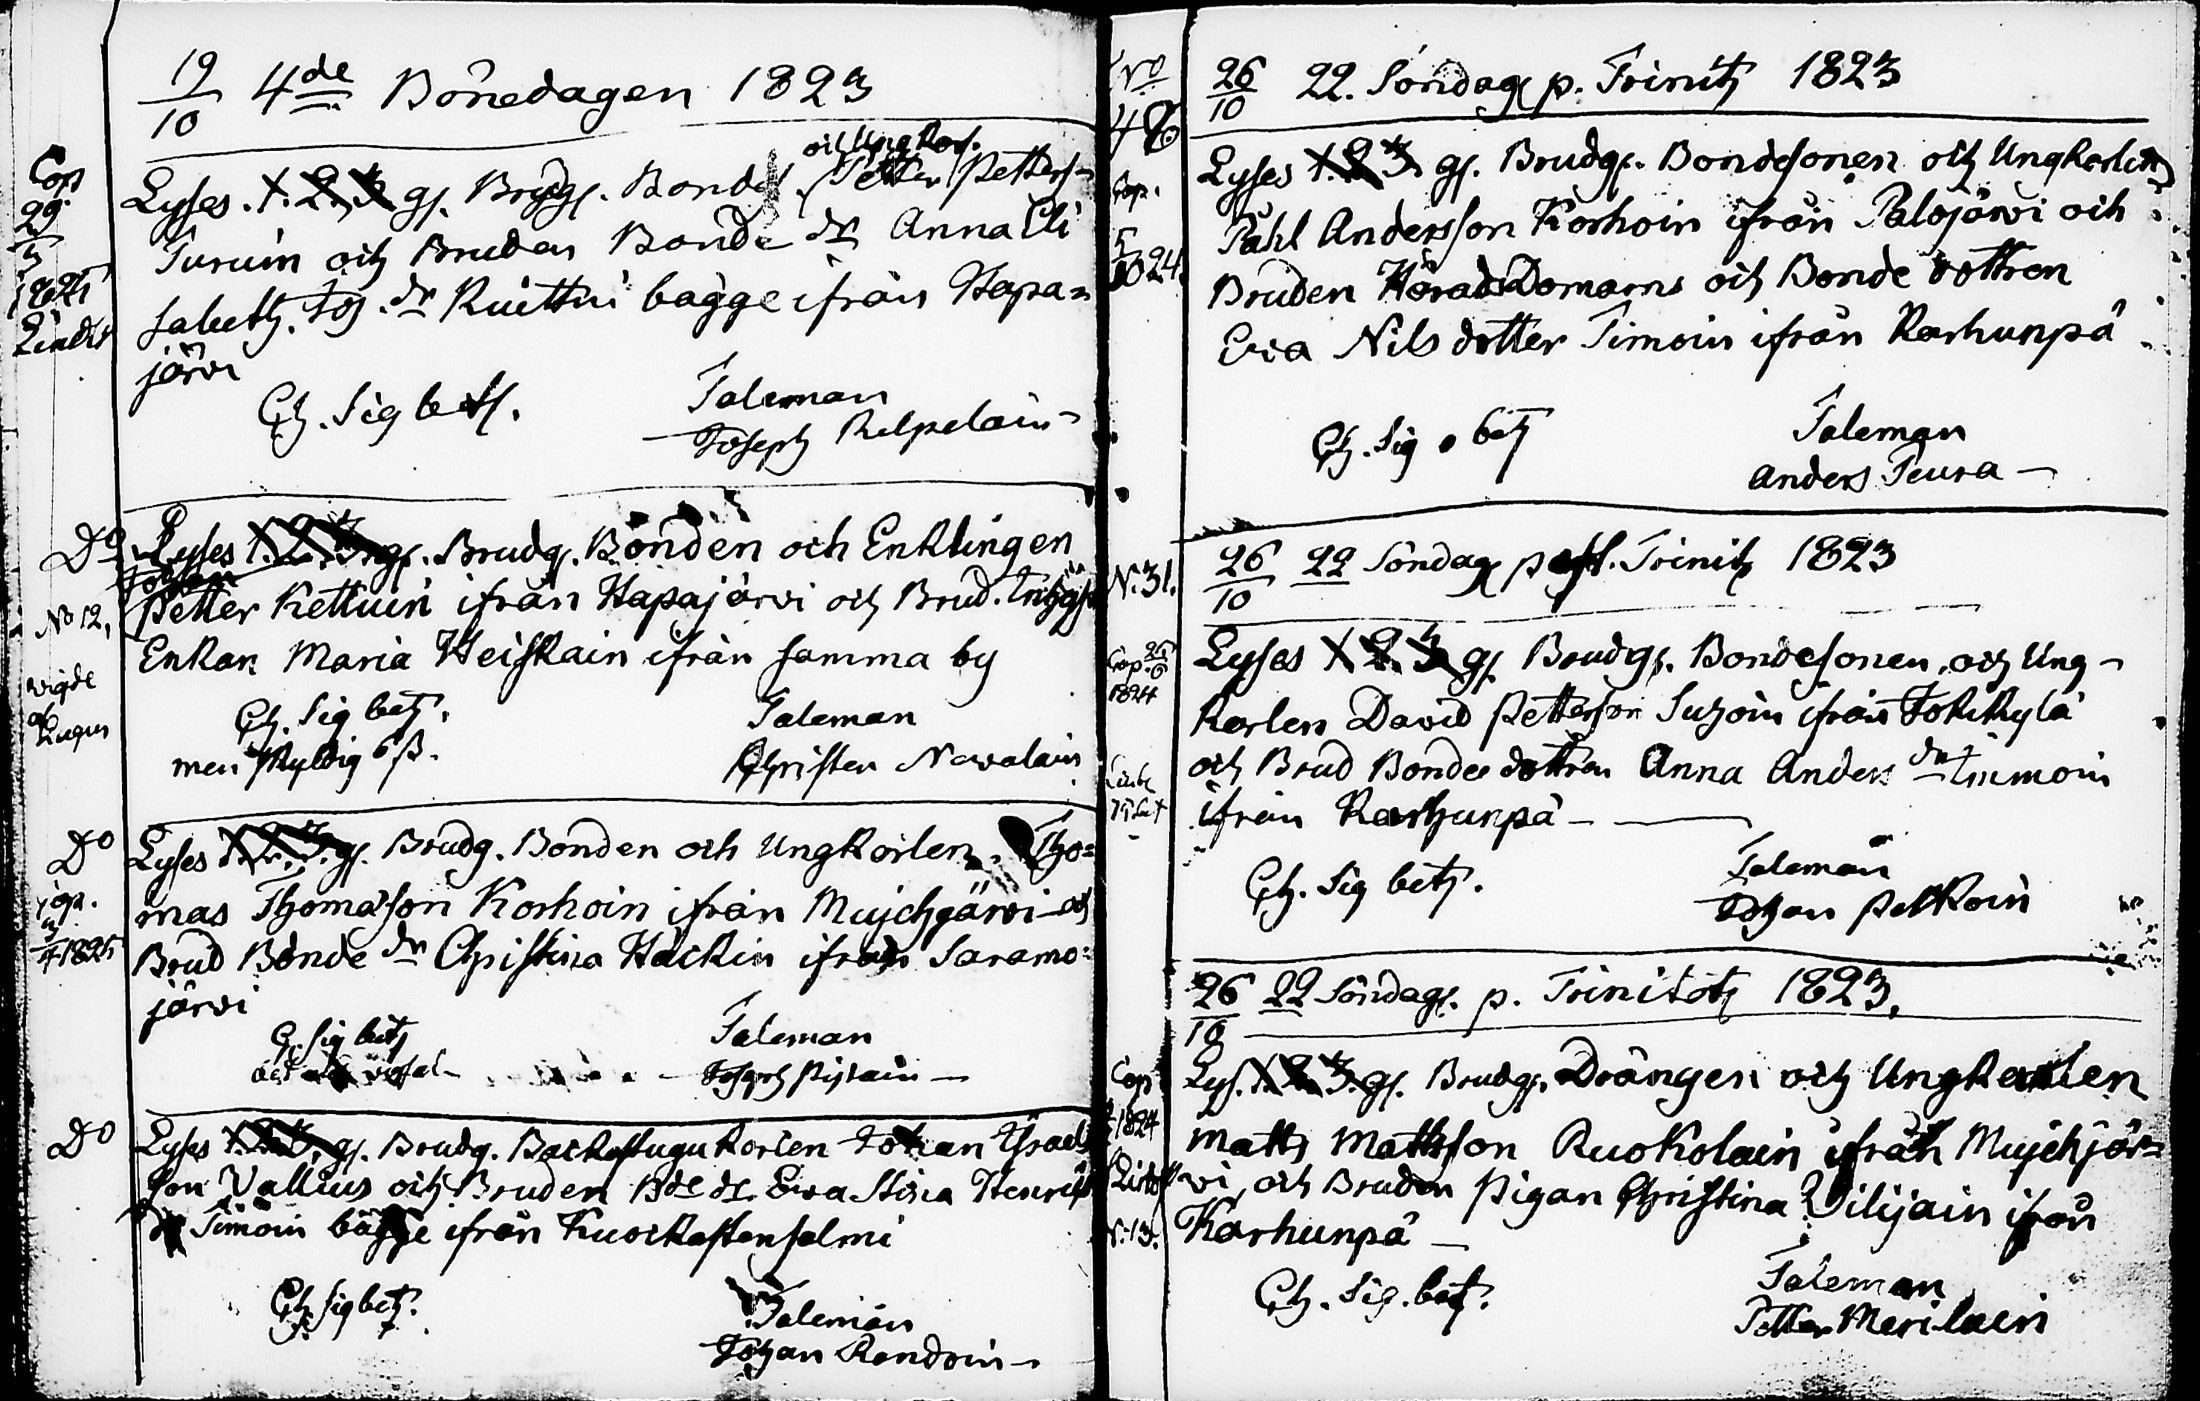 19/10 4de Bönedagen 1823
Cop
29
1824
och Ung Karl.
Lyses 1. 2. 3 g. Brudg. Bonden Petter Petters-
Turuin och Bruden Bonde dr Anna Eli
sabeth Jos. dr Kiettui bägge ifrån Hapa=
järvi
Ch. Sig bet.
Taleman
Joseph Relpelain
Do
No 12,
wigde
af
Lyses 1. 2. 3. g. Brudg. Bonden och Enklingen
Petter Kettuin ifrån Hapajärvi och Brud.
Enkan Maria Heiskain ifrån samma by
Ch. Sig bet.
men skyldig 6 ß.
Taleman
Christer Nawalain
Do
cop.
3/4 1825
Lyses 1. 2. 3. g. Brudg. Bonden och Ungkarlen Tho=
mas Thomasson Korhoin ifrån Mujchjärvi och
Brud Bonde dr Christina Häckin ifrån Saramo=
järvi
Ch. Sig bet
Taleman
Joseph Pijrain
Do
Lyses 1. 2. 3. g. Brudg. Backastugu Karlen Johan Israels
son Vallius och Bruden Bde dr Ewa Stina Henriks
dr Timoin bägge ifrån Kuockastensalmi
Ch. Sig bet.
Taleman
Johan Rondoin
No
48
Cop.
26/10 22. Söndag p. Trinit 1823
Lyses 1. 2 3 g. Brudg. Bondesonen och Ungkarlen
Påhl Andersson Korhoin ifrån Palojärvi och
Bruden Härads Domarns och Bonde dottren
Eva Nils dotter Timoin ifrån Karhunpä
Ch. Sig bet
Taleman
Anders Teura
N. 31.
26/10 22 Söndag p. Trinit 1823
Cop
1824
Lyses 1 2. 3 g. Brudg. Bondesonen, och Ung-
karlen David Petterson Suhoin ifrån Jokikylä
och Brud Bonde dottren Anna Anders dr Timmoin
ifrån Karhunpä
Ch. Sig bet.
Taleman
Johan Pesskoin
26/10 22 Söndag. p. Trinitat 1823.
Cop
1824
N. 13.
Lys. 1. 2. 3. g. Brudg. Drängen och Ungkarlen
Matts Mattsson Ruokolain ifrån Mujchjär=
vi, och Bruden Pigan Christina Vilijain ifrån
Karhunpä
Ch. Sig. bet.
Taleman
Petter Merilain